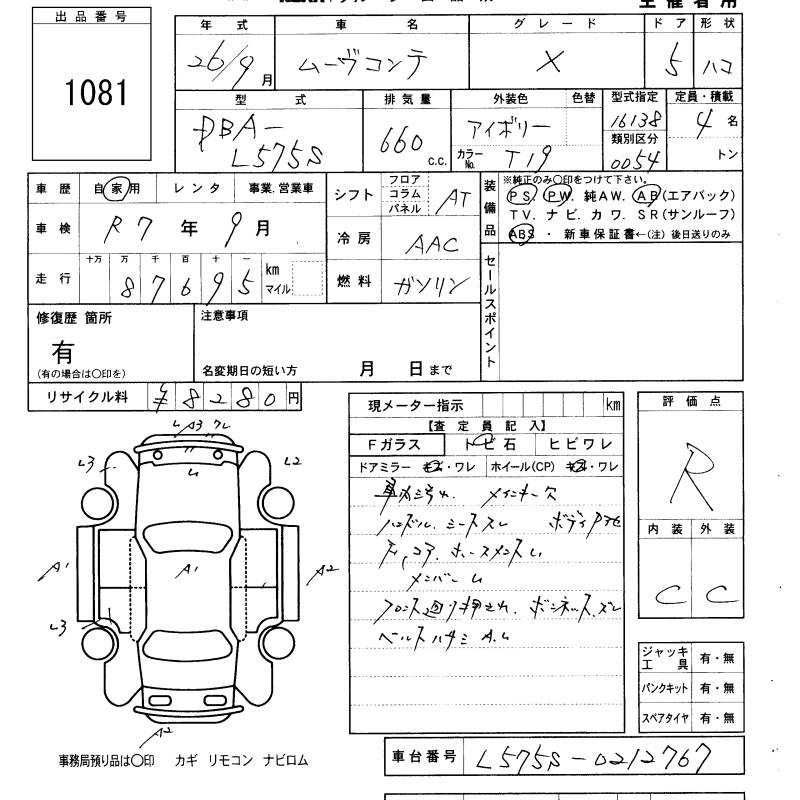 出品番号
1081
年式 車名 グレード ドア 形状
26/9月 ムーヴコンテ X 5 ハコ
型式 排気量 外装色 色替 型式指定 定員・積載
DBA-L575S 660 c.c. アイボリー 16138 4名
カラーNo. T19 類別区分 0054 トン
車歴 自家用 レンタ 事業.営業車
車検 R7年9月
走行 十万 万 千 百 十 一
87695 km マイル
シフト フロア コラム パネル AT
冷房 AAC
燃料 ガソリン
装備品
※純正のみ○印をつけて下さい。
PS. PW. 純AW. AB(エアバック)
TV. ナビ. カワ. SR(サンルーフ)
ABS ・ 新車保証書←(注) 後日送りのみ
セールスポイント
修復歴 箇所
有
(有の場合は○印を)
注意事項
名変期日の短い方 月 日まで
リサイクル料 ¥8280円
現メーター指示 km
【査定員記入】
Fガラス トビ石 ヒビワレ
ドアミラー キズ・ワレ ホイール(CP) キズ・ワレ
車内汚れ メインキー欠
ハンドル、シートスレ
メンバーム
フロント廻り押され、ボンネットズレ
評価点
R
内装 外装
C C
ジャッキ工具 有・無
パンクキット 有・無
スペアタイヤ 有・無
A3
L3 L2
A1 A1 A2
L3
A2
事務局預り品は○印 カギ リモコン ナビロム
車台番号 L575S-0212767